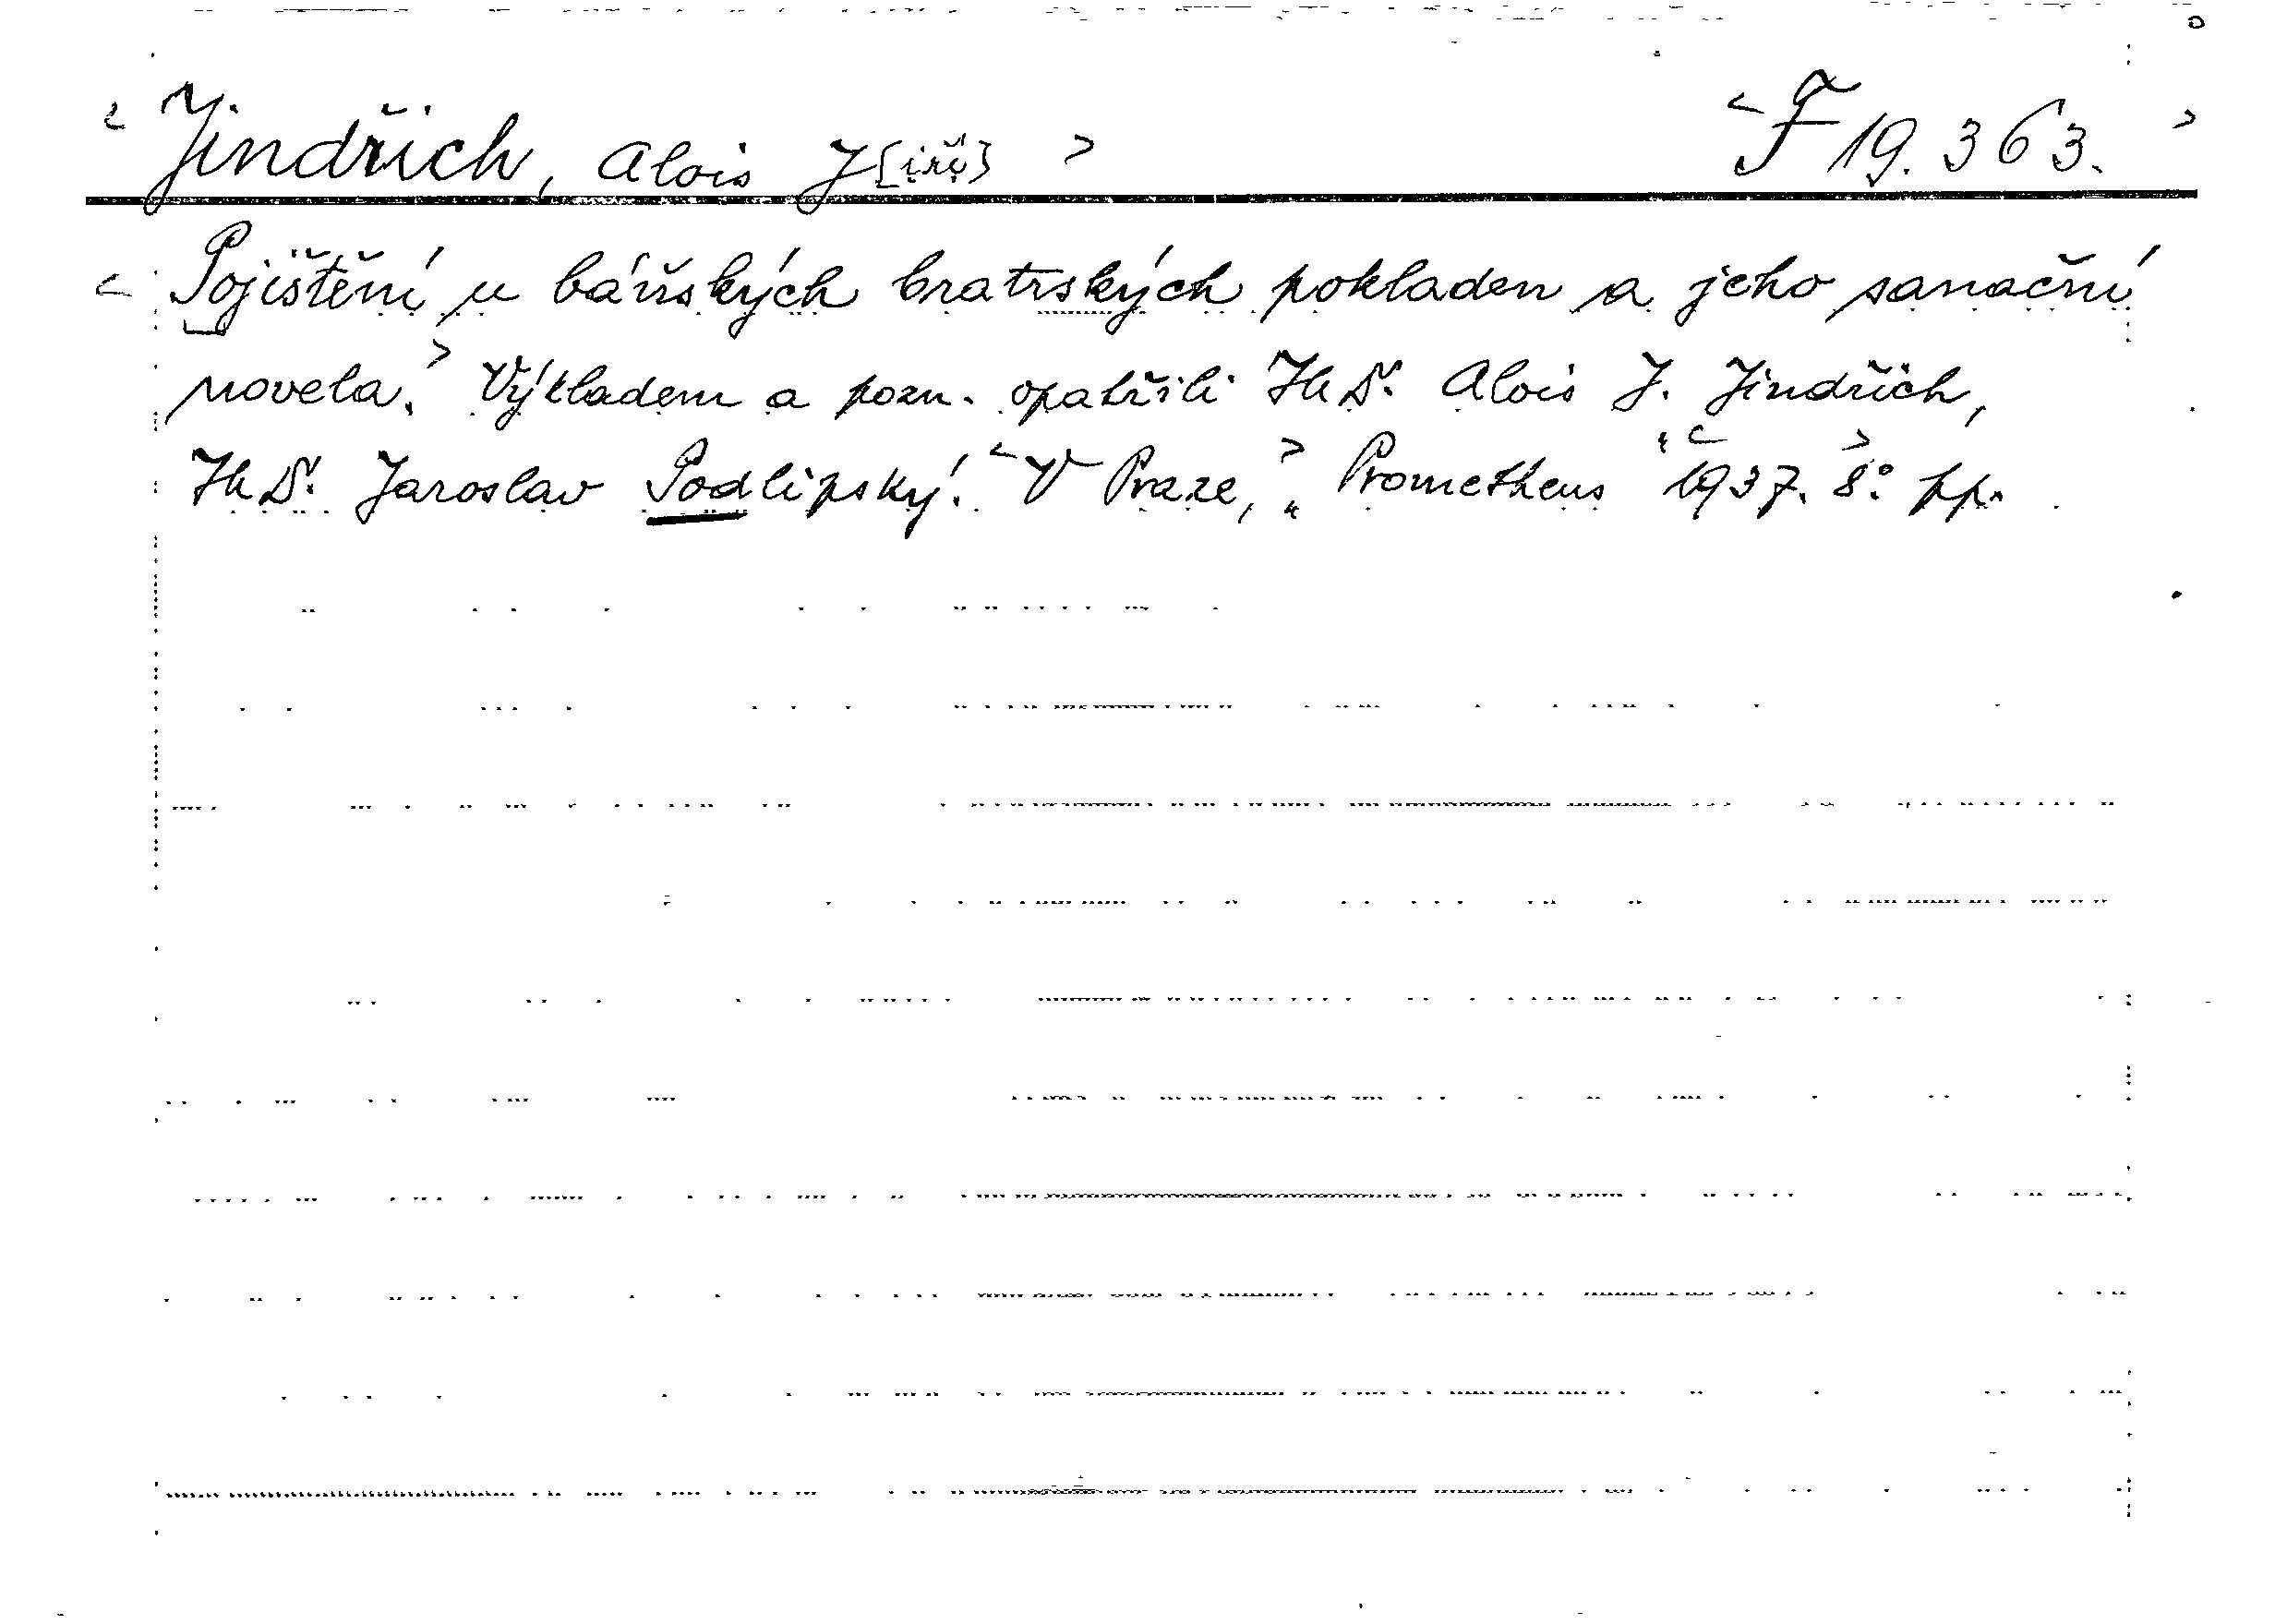 < Jindřich, Alois J[iří] > < F 19.363. >
< Pojištění u báňských bratrských pokladen a jeho sanační
novela. > Výkladem a pozn. opatřili JUDr. Alois J. Jindřich,
JUDr. Jaroslav Podlipský. < V Praze, > „Prometheus“ < 1937. > 8° pp.